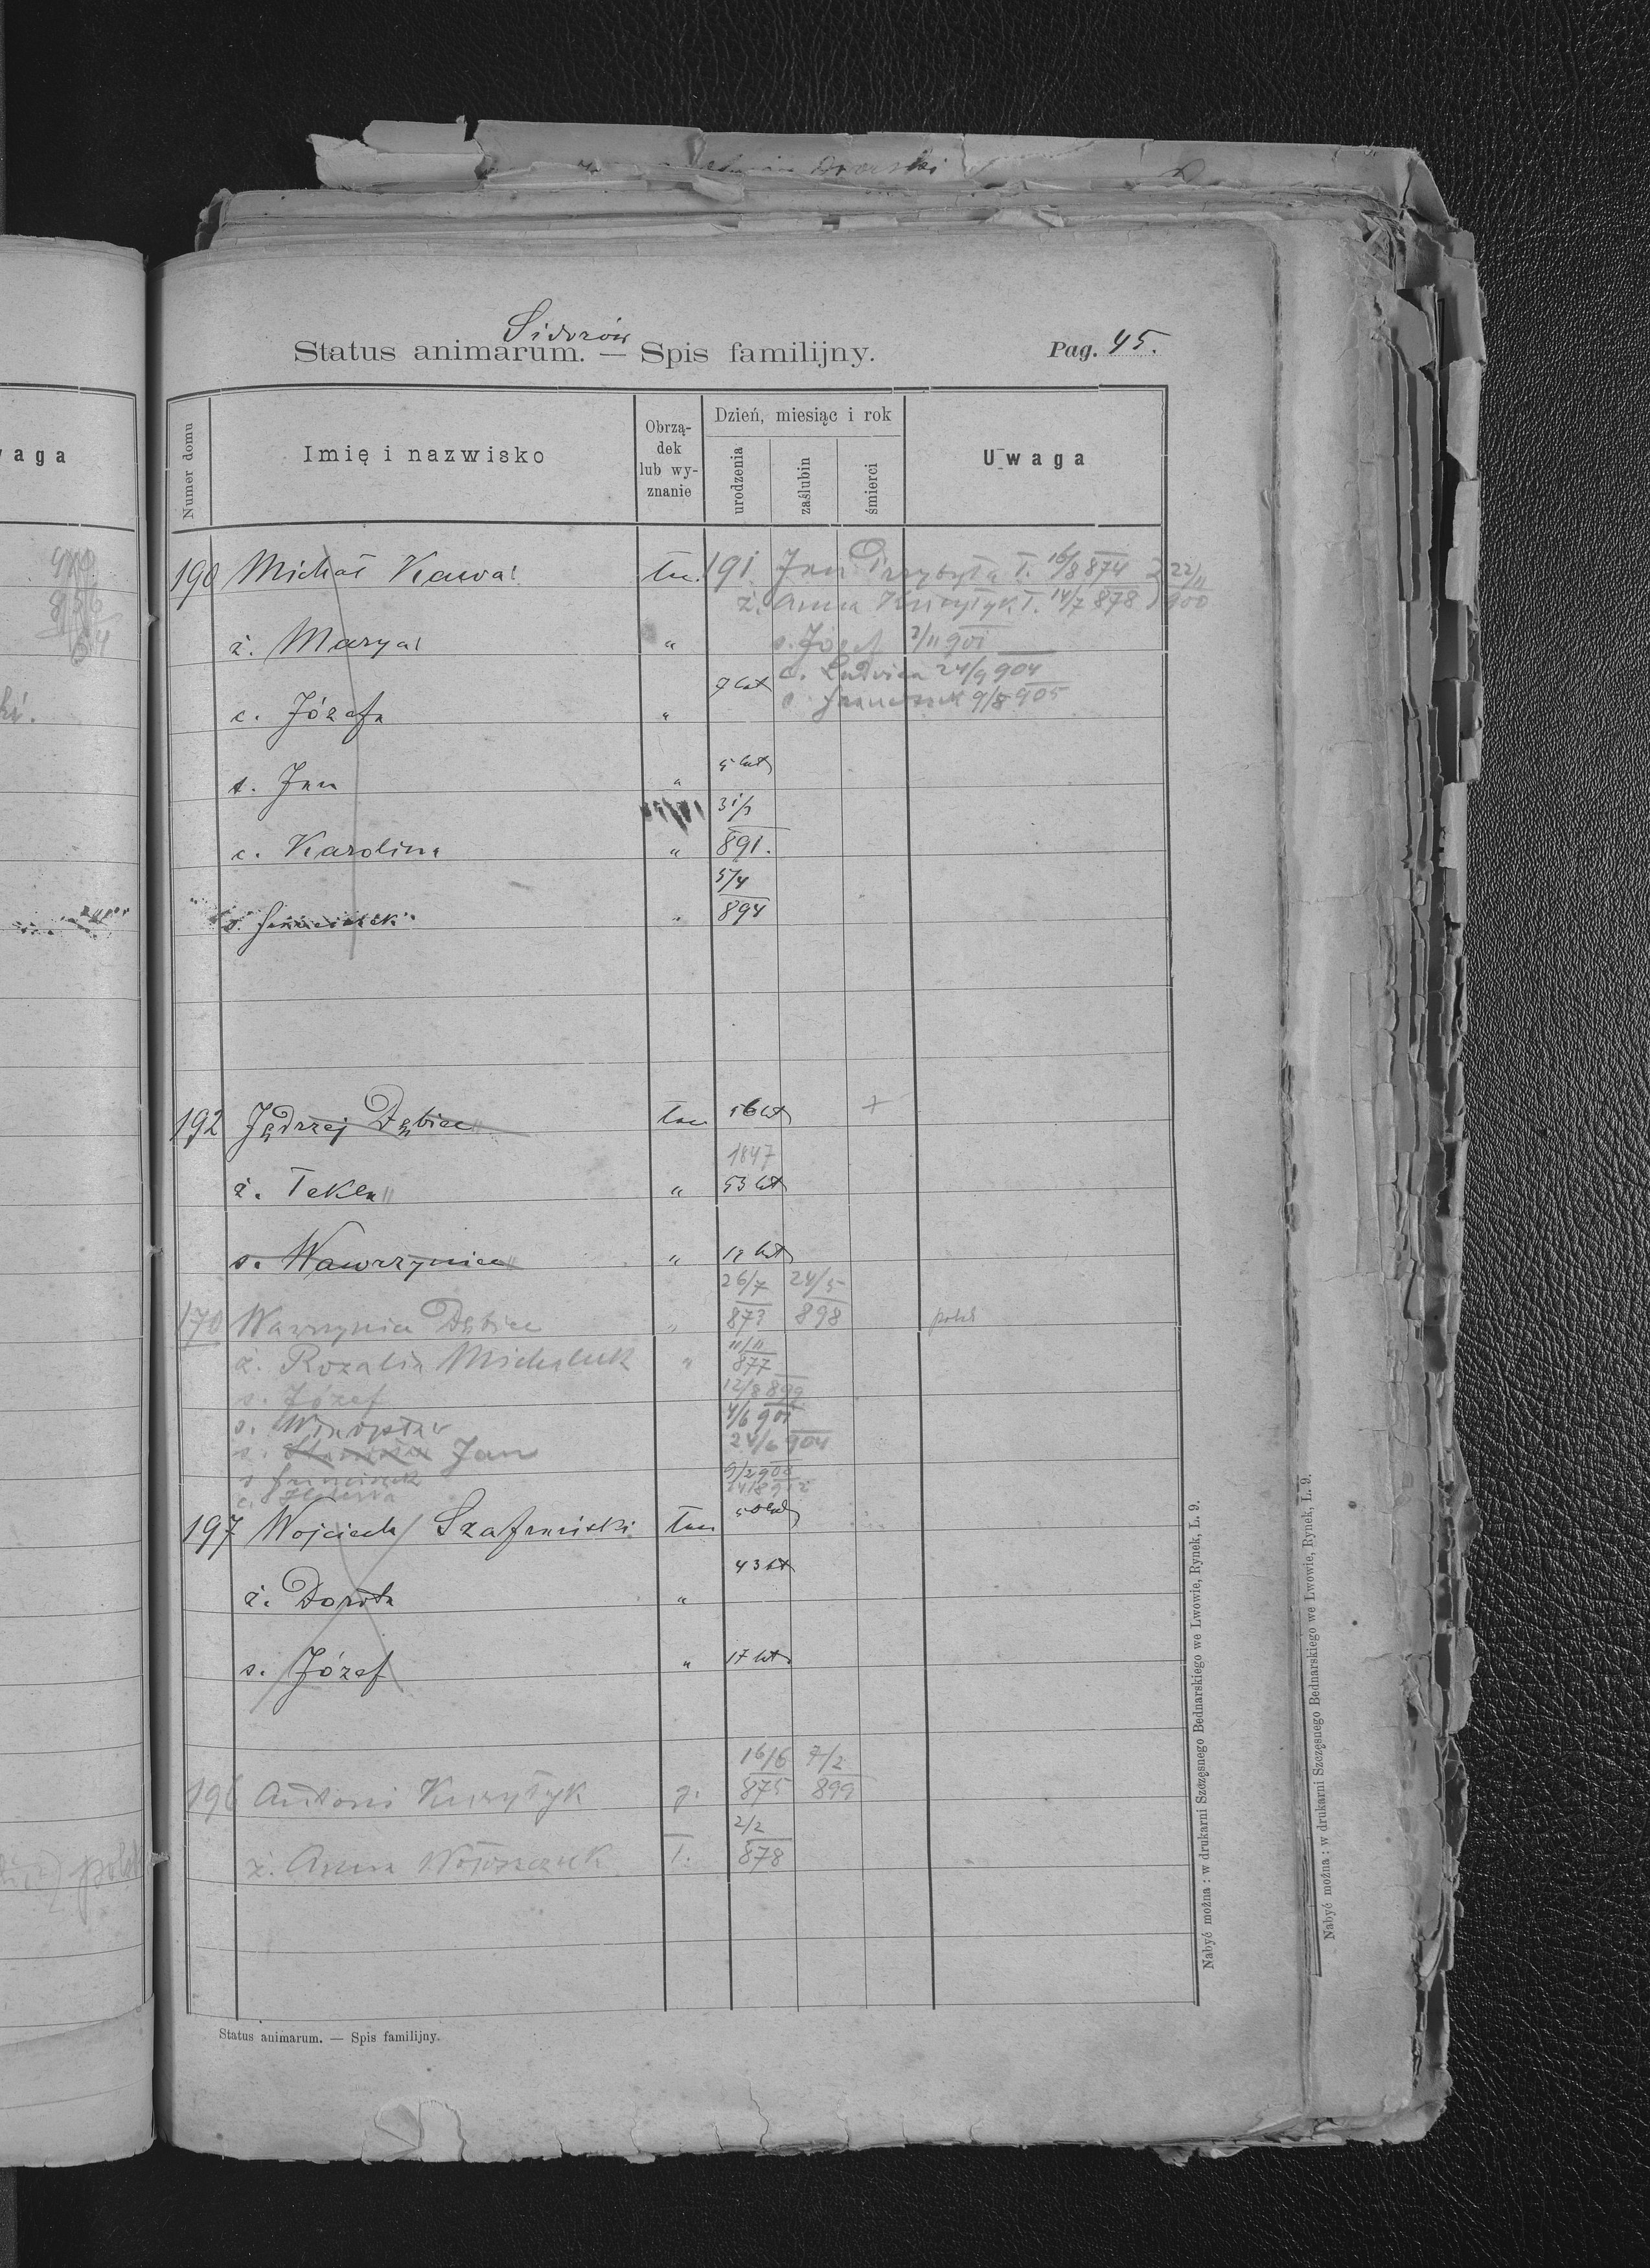 Sidorów
Status animarum. — Spis familijny.
Pag. 45.
Numer domu
Imię i nazwisko
Obrzą-
dek
lub wy-
znanie
Dzień, miesiąc i rok
urodzenia
zaślubin
śmierci
Uwaga
waga
190 Michał Kawa łac. 191. Jan Przybyła Ł. 16/8 874 22/11
ż. Anna Kuryłyk Ł. 14/7 878 900
ż. Marya " s. Józef 2/11 901
c. Ludwika 24/9 904
c. Józefa " 7 lat s. Franciszek 9/8 905
s. Jan " 5 lat
31/3
c. Karolina " 891.
5/4
s. Franciszek " 894
192 Jędrzej Dębiec łac 56 lat +
1847
ż. Tekla " 53 lat
s. Wawrzyniec " 19 lat
26/7 24/5
170 Wawrzyniec Dębiec " 873 898 polski
11/11
ż. Rozalia Michaluk " 877
s. Józef 12/8 899
s. Władysław 4/6 901
s. Jan 24/6 904
s. Franciszek 9/2 908
c.
197 Wojciech Szafrański łac 50 lat
ż. Dorota " 43 lat
s. Józef " 17 lat
16/6 7/2
196 Antoni Kuryłyk g. 875 899
2/2
ż. Anna Ł. 878
Status animarum. — Spis familijny.
Nabyć można: w drukarni Szczęsnego Bednarskiego we Lwowie, Rynek, L. 9.
Nabyć można: w drukarni Szczęsnego Bednarskiego we Lwowie, Rynek, L. 9.